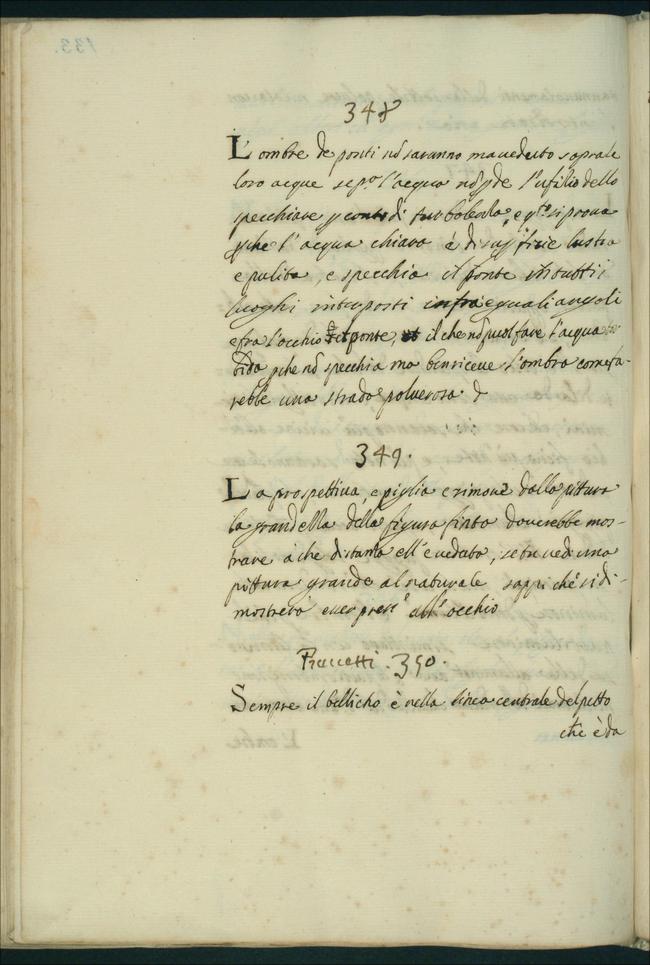 348
L'ombre de ponti nō saranno mai vedute soprale
loro acque se pª l'acqua nō pde l'ufitio dello
specchiare p conto di turbolenda, e qº. si prova
pche l'acqua chiara é di supfitie lustra
e pulita, e specchia il ponte in tutti i
luoghi interposti infra eguali angoli
e fra l'occhio e il ponte, il che nō puol fare l'acqua tor
bida pche nō specchia ma ben riceve l'ombra come fa-
rebbe una strada polverosa.
349.
La prospettiva, e piglia e rimove dalla pittura
la grandezza della figura finta doverebbe mos-
trare à che distantia ell'é veduta, se tu vedi una
pittura grande al naturale sappi chē si di-
mostrerà esser presº all'occhio
Precetti. 350.
Sempre il bellicho è nella linea centrale del petto
chē è da